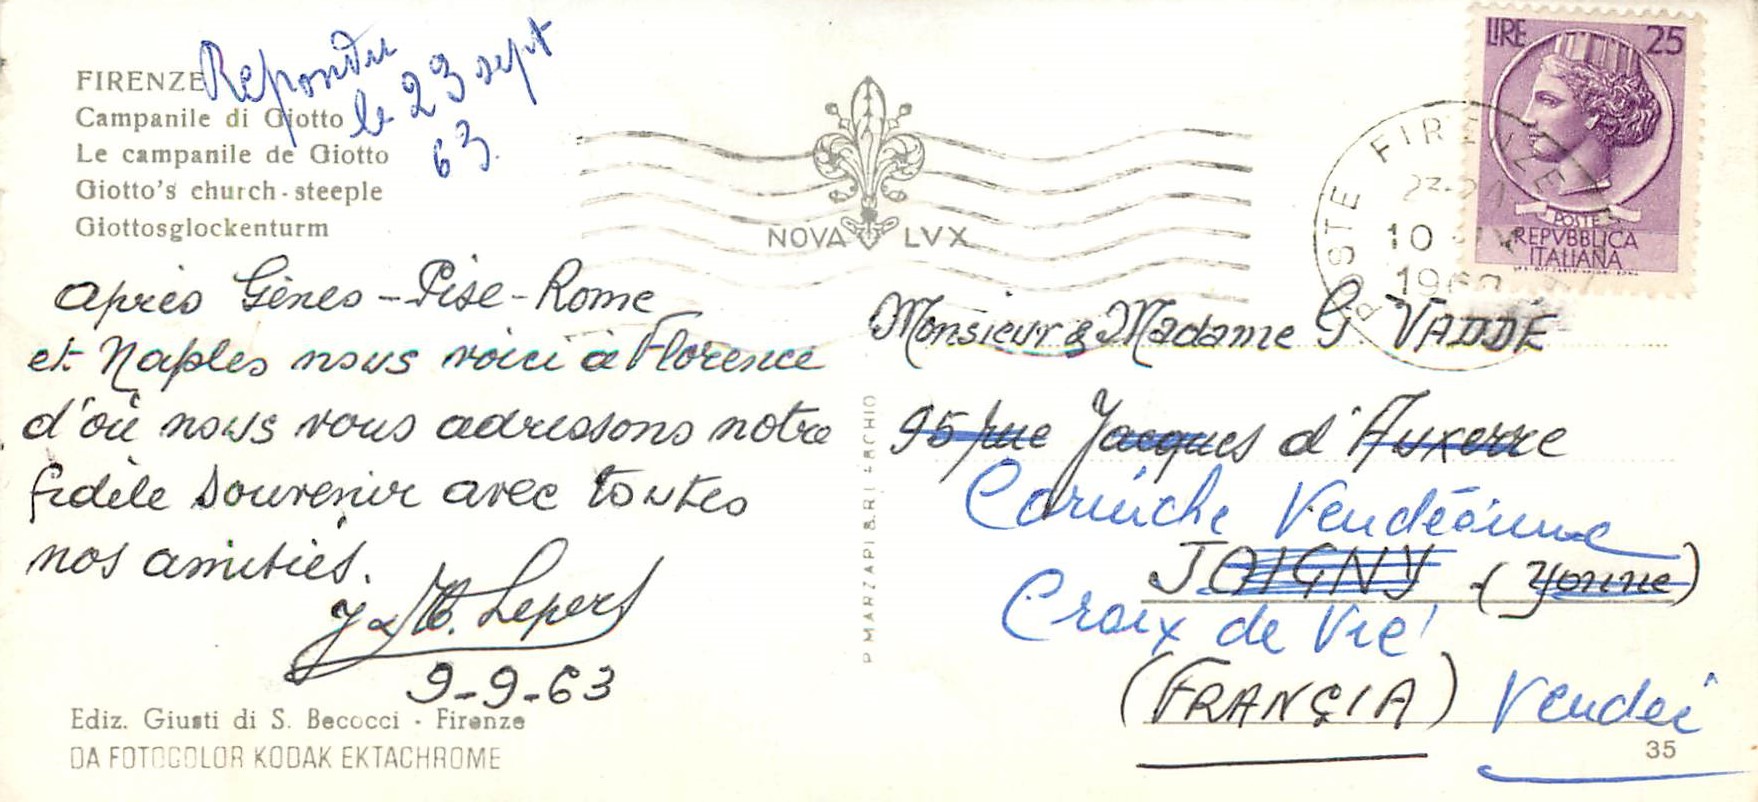 FIRENZE
Campanile di Giotto
Le campanile de Giotto
Giotto's church-steeple
Giottosglockenturm
Repondu
le 23 sept
63.
NOVA LVX
LIRE 25
POSTE
REPVBBLICA
ITALIANA
POSTE FIRENZE
10
1963
Après Gênes - Pise - Rome
et Naples nous voici à Florence
d'où nous vous adressons notre
fidèle souvenir avec toutes
nos amitiés.
J & M. Lepers
9-9-63
Ediz. Giusti di S. Becocci - Firenze
DA FOTOCOLOR KODAK EKTACHROME
Monsieur & Madame G VADDÉ
95 rue Jacques d'Auxerre
Corniche Vendéenne
JOIGNY (Yonne)
Croix de Vie
(FRANCIA) Vendée
35